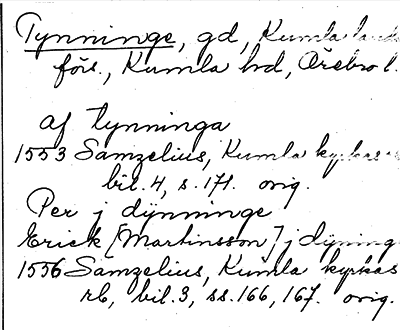 Tynninge, gd, Kumla lands
förs., Kumla hd, Örebro l.
af tynninga
1553 Samzelius, Kumla kyrkas
bil. 4, s. 171. orig.
Per j dÿnninge
Erick [Martinsson] j dÿning
1556 Samzelius, Kumla kyrkas
rb, bil. 3, ss. 166, 167. orig.